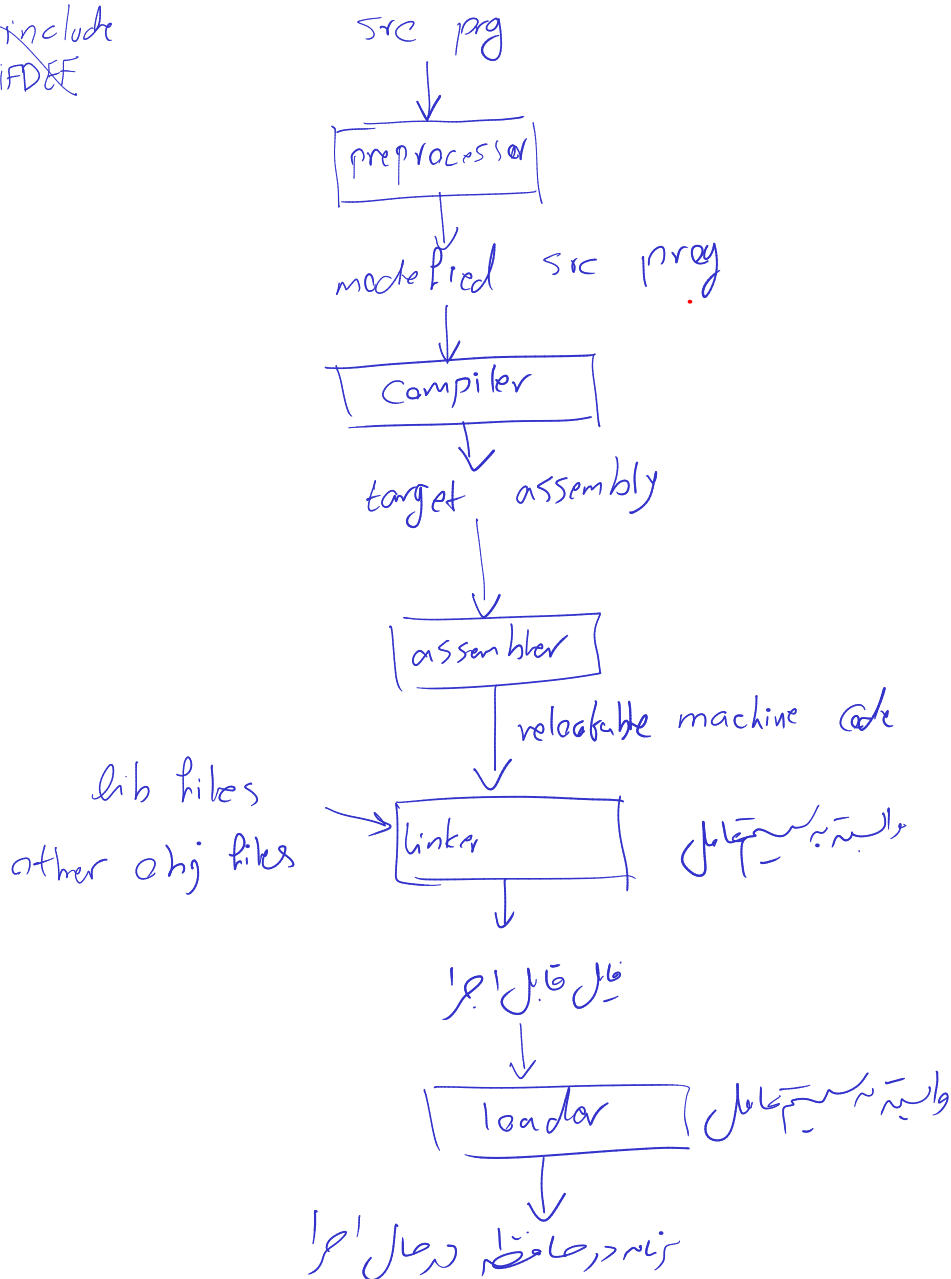 include
IFDEF
src prg
preprocessor
modefied src prog
Compiler
target assembly
assembler
relocatable machine code
lib files
other obj files
linker
وابسته به سیستم عامل
فایل قابل اجرا
loador
وابسته به سیستم عامل
برنامه در حافظه در حال اجرا